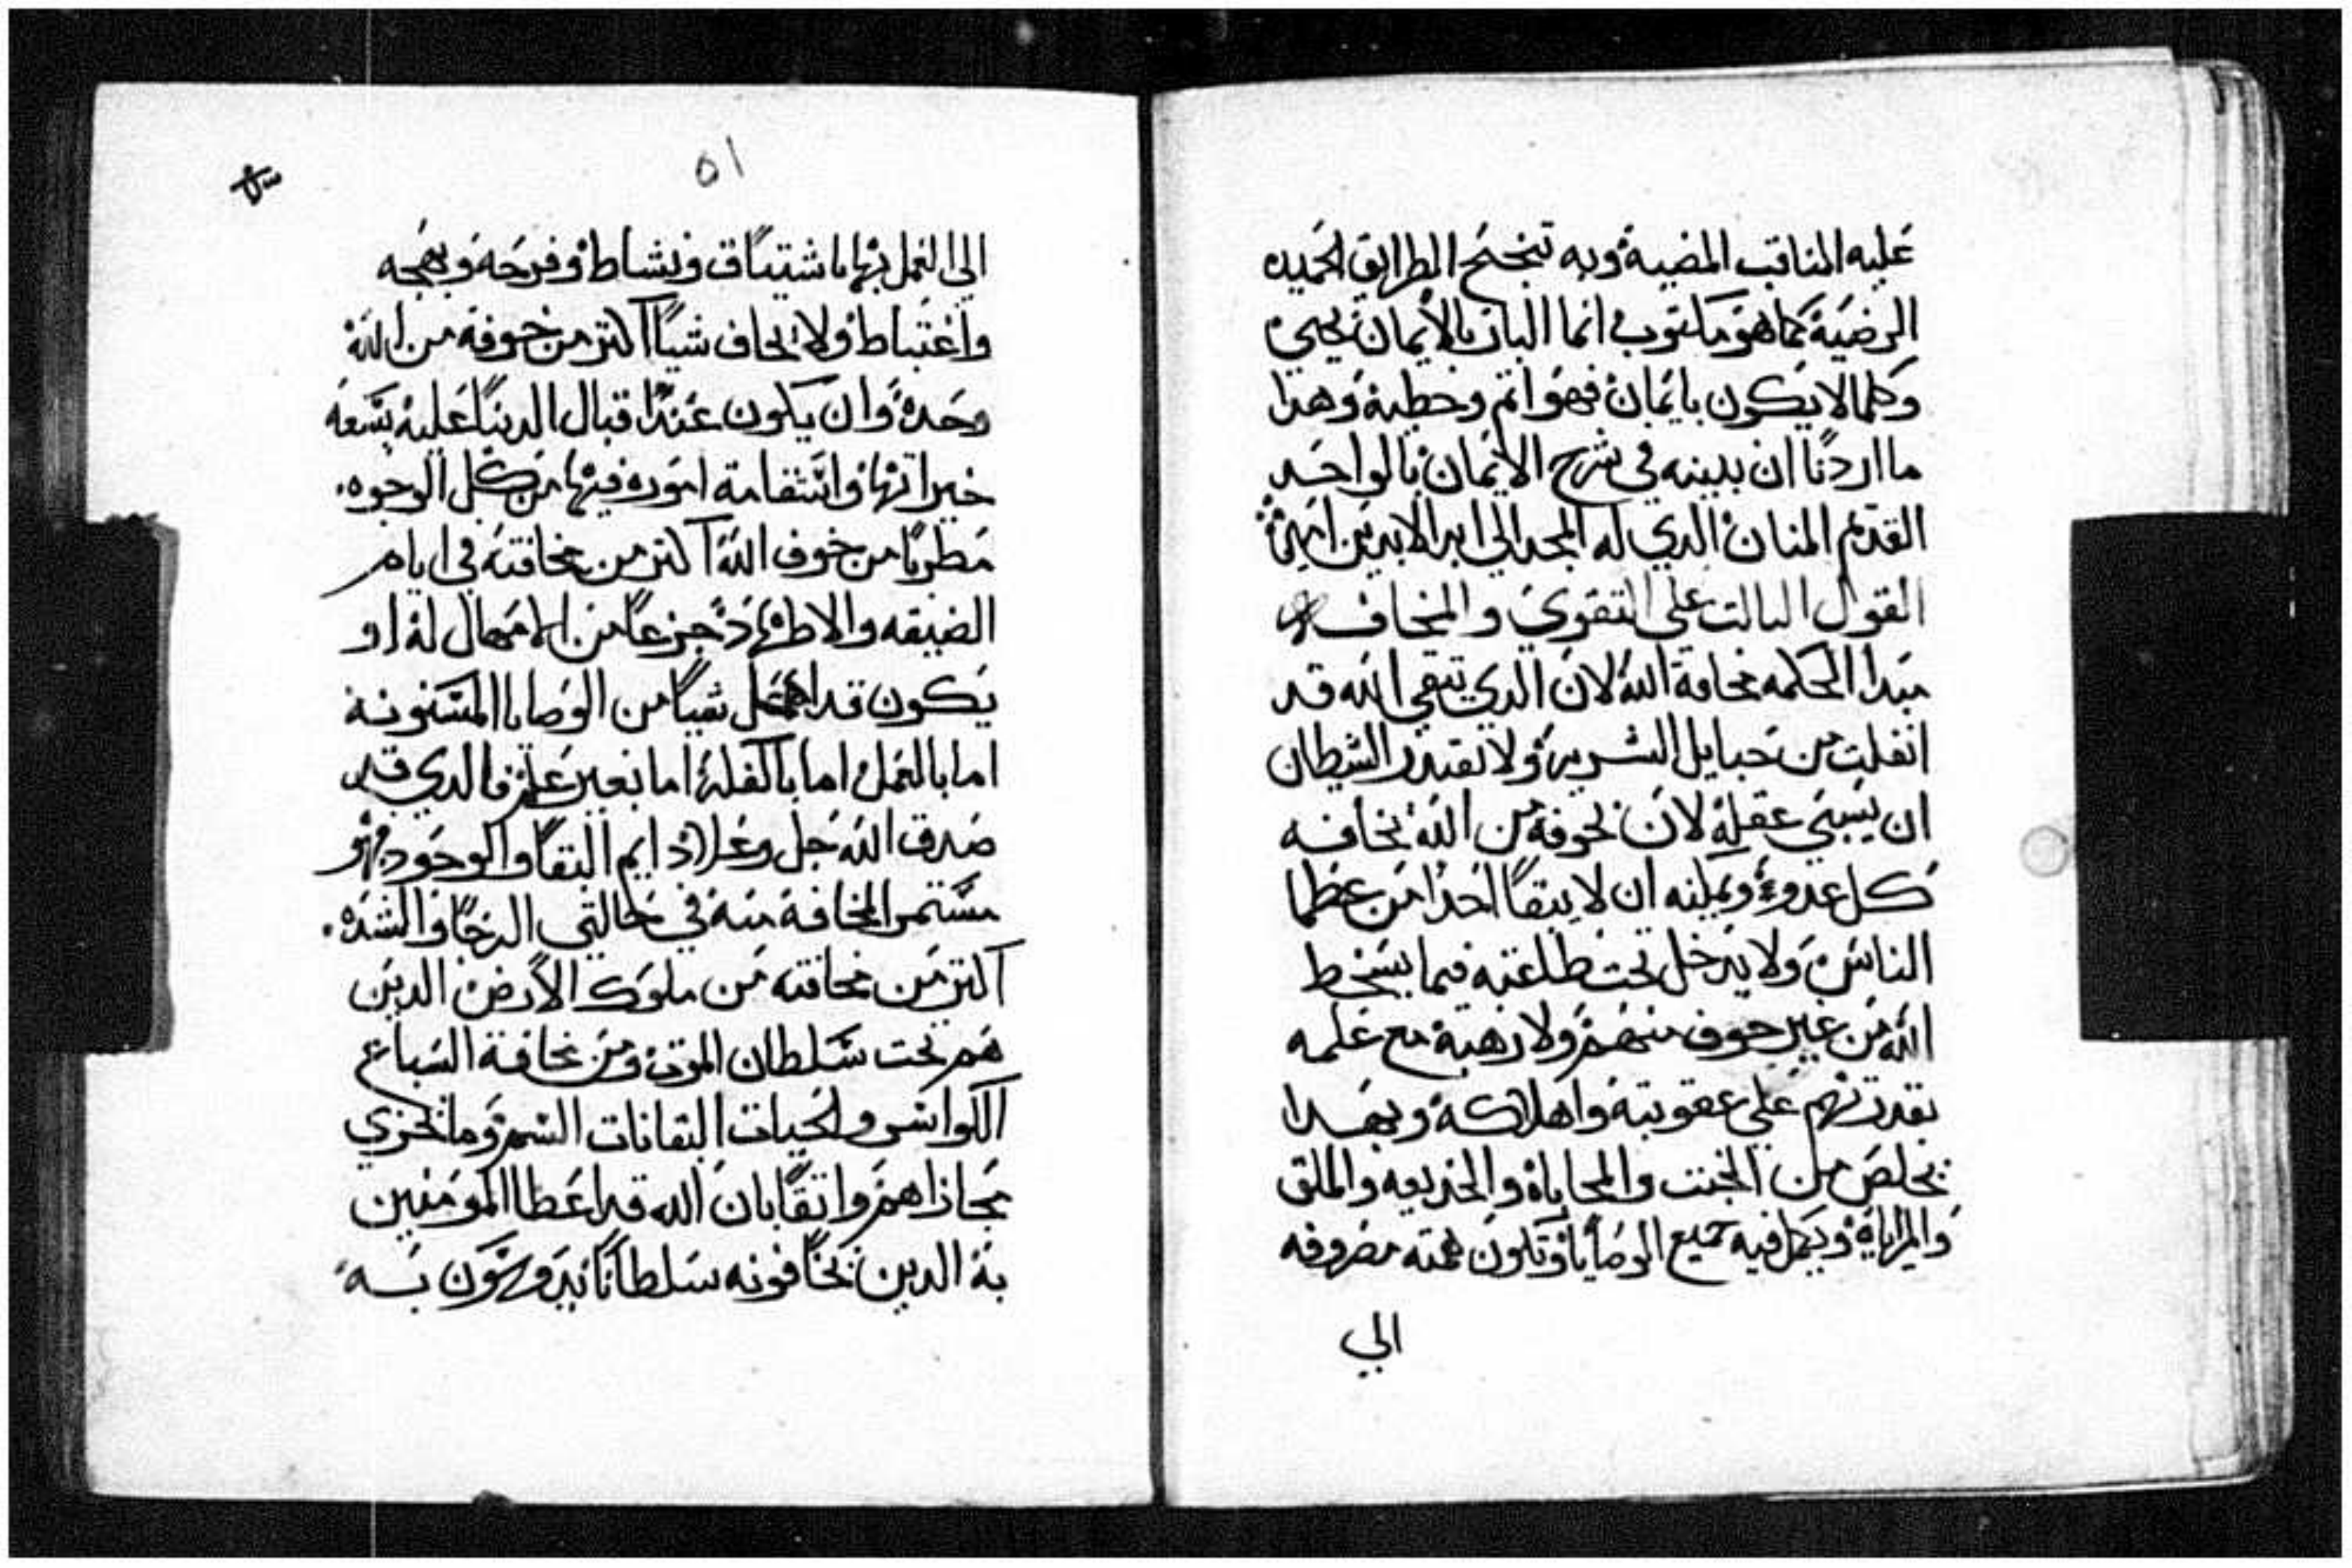 عليه المناقب المضيية وبه تنجنح الطرايق الحميده
الرضية كما هو مكتوب انما البار بالايمان يحيى
وكلما لا يكون بايمان فهو اتم وخطية وهدا
ما اردنا ان نبينه في شرح الايمان بالواحد
القديم المنان الدي له المجد الي ابد الابدين امين
القول التالت علي التقوي والمخافه
مبدا الحكمه مخافة الله لان الدي يتقي الله قد
انفلت من حبايل الشرير ولا يقتدر الشيطان
ان يسبي عقله لان لخوفه من الله يخافه
كل عدو ويمكنه ان لا يتقا احدا من عظما
الناس ولا يدخل تحت طاعته فيما يسخط
الله من غير خوف منهم ولا رهبة مع علمه
بقدرتهم علي عقوبته واهلاكه وبهدا
يخلص من الخبت والمحاباة والخديعه والملق
والمراياة ويكمل فيه جميع الوصايا وتكون همته مصروفه
الي
٥١
الي العمل بها باشتياق ونشاط وفرحه وبهجه
واغتباط ولا يخاف شيا اكتر من خوفه من الله
وحده وان يكون عند اقبال الدنيا عليه بسعة
خيراتها واستقامة اموره فيها من كل الوجوه
مطربا من خوف الله اكتر من مخافته في ايام
الضيقه والاطهاد جزعا من الامهال له او
يكون قد اهمل شيا من الوصايا المسنونه
اما بالعمل اما بالغفلة اما بغير علم فالدي قد
صدق الله جل وعلا دايم البقا والوجود فهو
مستمر المخافة منه في حالتي الرخا والشده
اكتر من مخافته من ملوك الارض الدين
هم تحت سلطان الموت ومن مخافة السباع
الكواسر والحيات النفاتات السم وما يجزي
مجازاهم واتقا بان الله قد اعطا المومنين
به الدين يخافونه سلطانا يدوسون به